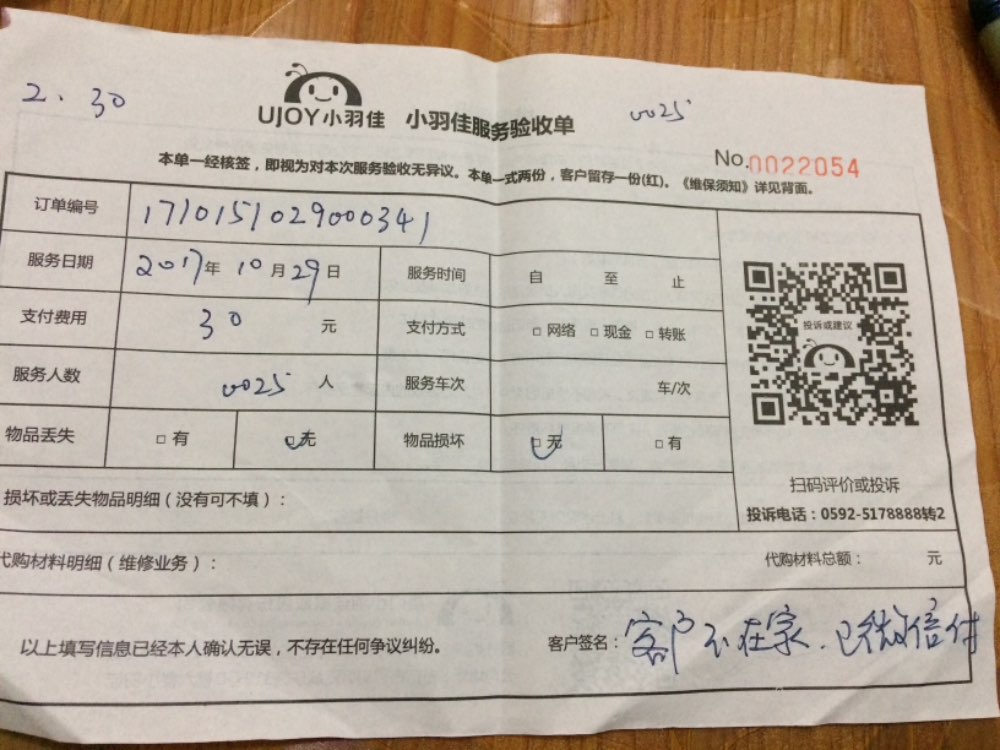 2.30
0025
UJOY小羽佳 小羽佳服务验收单
No.0022054
本单一经核签，即视为对本次服务验收无异议。本单一式两份，客户留存一份(红)。《维保须知》详见背面。
订单编号 1710151029000341
服务日期 2017年 10月29日 服务时间 自 至 止
支付费用 30 元 支付方式 □ 网络 □ 现金 □ 转账
投诉或建议
服务人数 0025 人 服务车次 车/次
物品丢失 □ 有 □ 无 物品损坏 □ 无 □ 有
扫码评价或投诉
投诉电话：0592-5178888转2
损坏或丢失物品明细（没有可不填）：
代购材料明细（维修业务）： 代购材料总额： 元
以上填写信息已经本人确认无误，不存在任何争议纠纷。 客户签名：客户不在家.已微信付